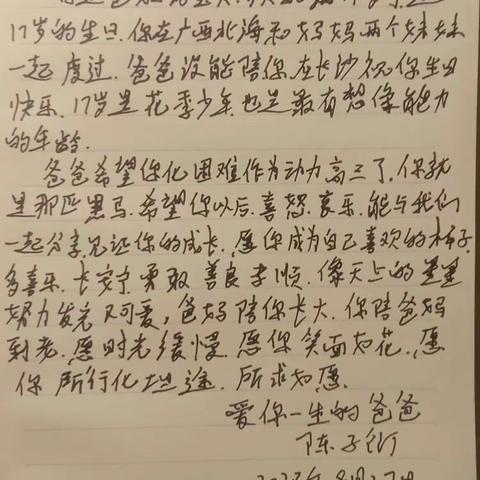 17岁的生日.你在广西北海和妈妈两个妹妹
一起度过.爸爸没能陪你.在长沙祝你生日
快乐.17岁是花季少年.也是最有想像能力
的年龄.
爸爸希望你化困难作为动力高三了.你就
是那匹黑马.希望你以后.喜怒.哀乐.能与我们
一起分享见证你的成长.愿你成为自己喜欢的样子.
多喜乐.长安宁.勇敢 善良 孝顺.像天上的星星
努力发光 又可爱,爸妈陪你长大.你陪爸妈
到老.愿时光缓慢.愿你笑面如花.愿
你 所行化坦途.所求如愿.
爱你一生的爸爸
陈子